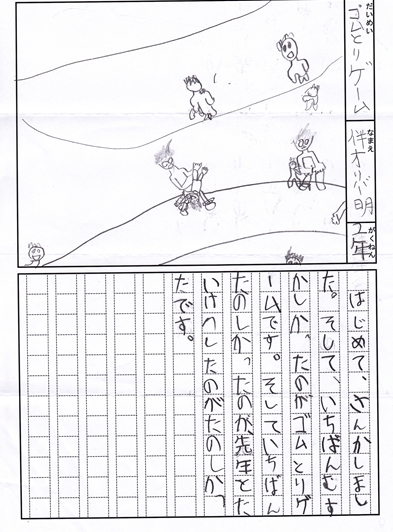 だいめい
ゴムとりゲーム
なまえ
伴オリバ明
がくねん
2年
はじめて、さんかしまし
た。そして、いちばんむず
かしかったのがゴムとりゲ
ームです。そしていちばん
たのしかったのが先生とた
いけつしたのがたのしかっ
たです。